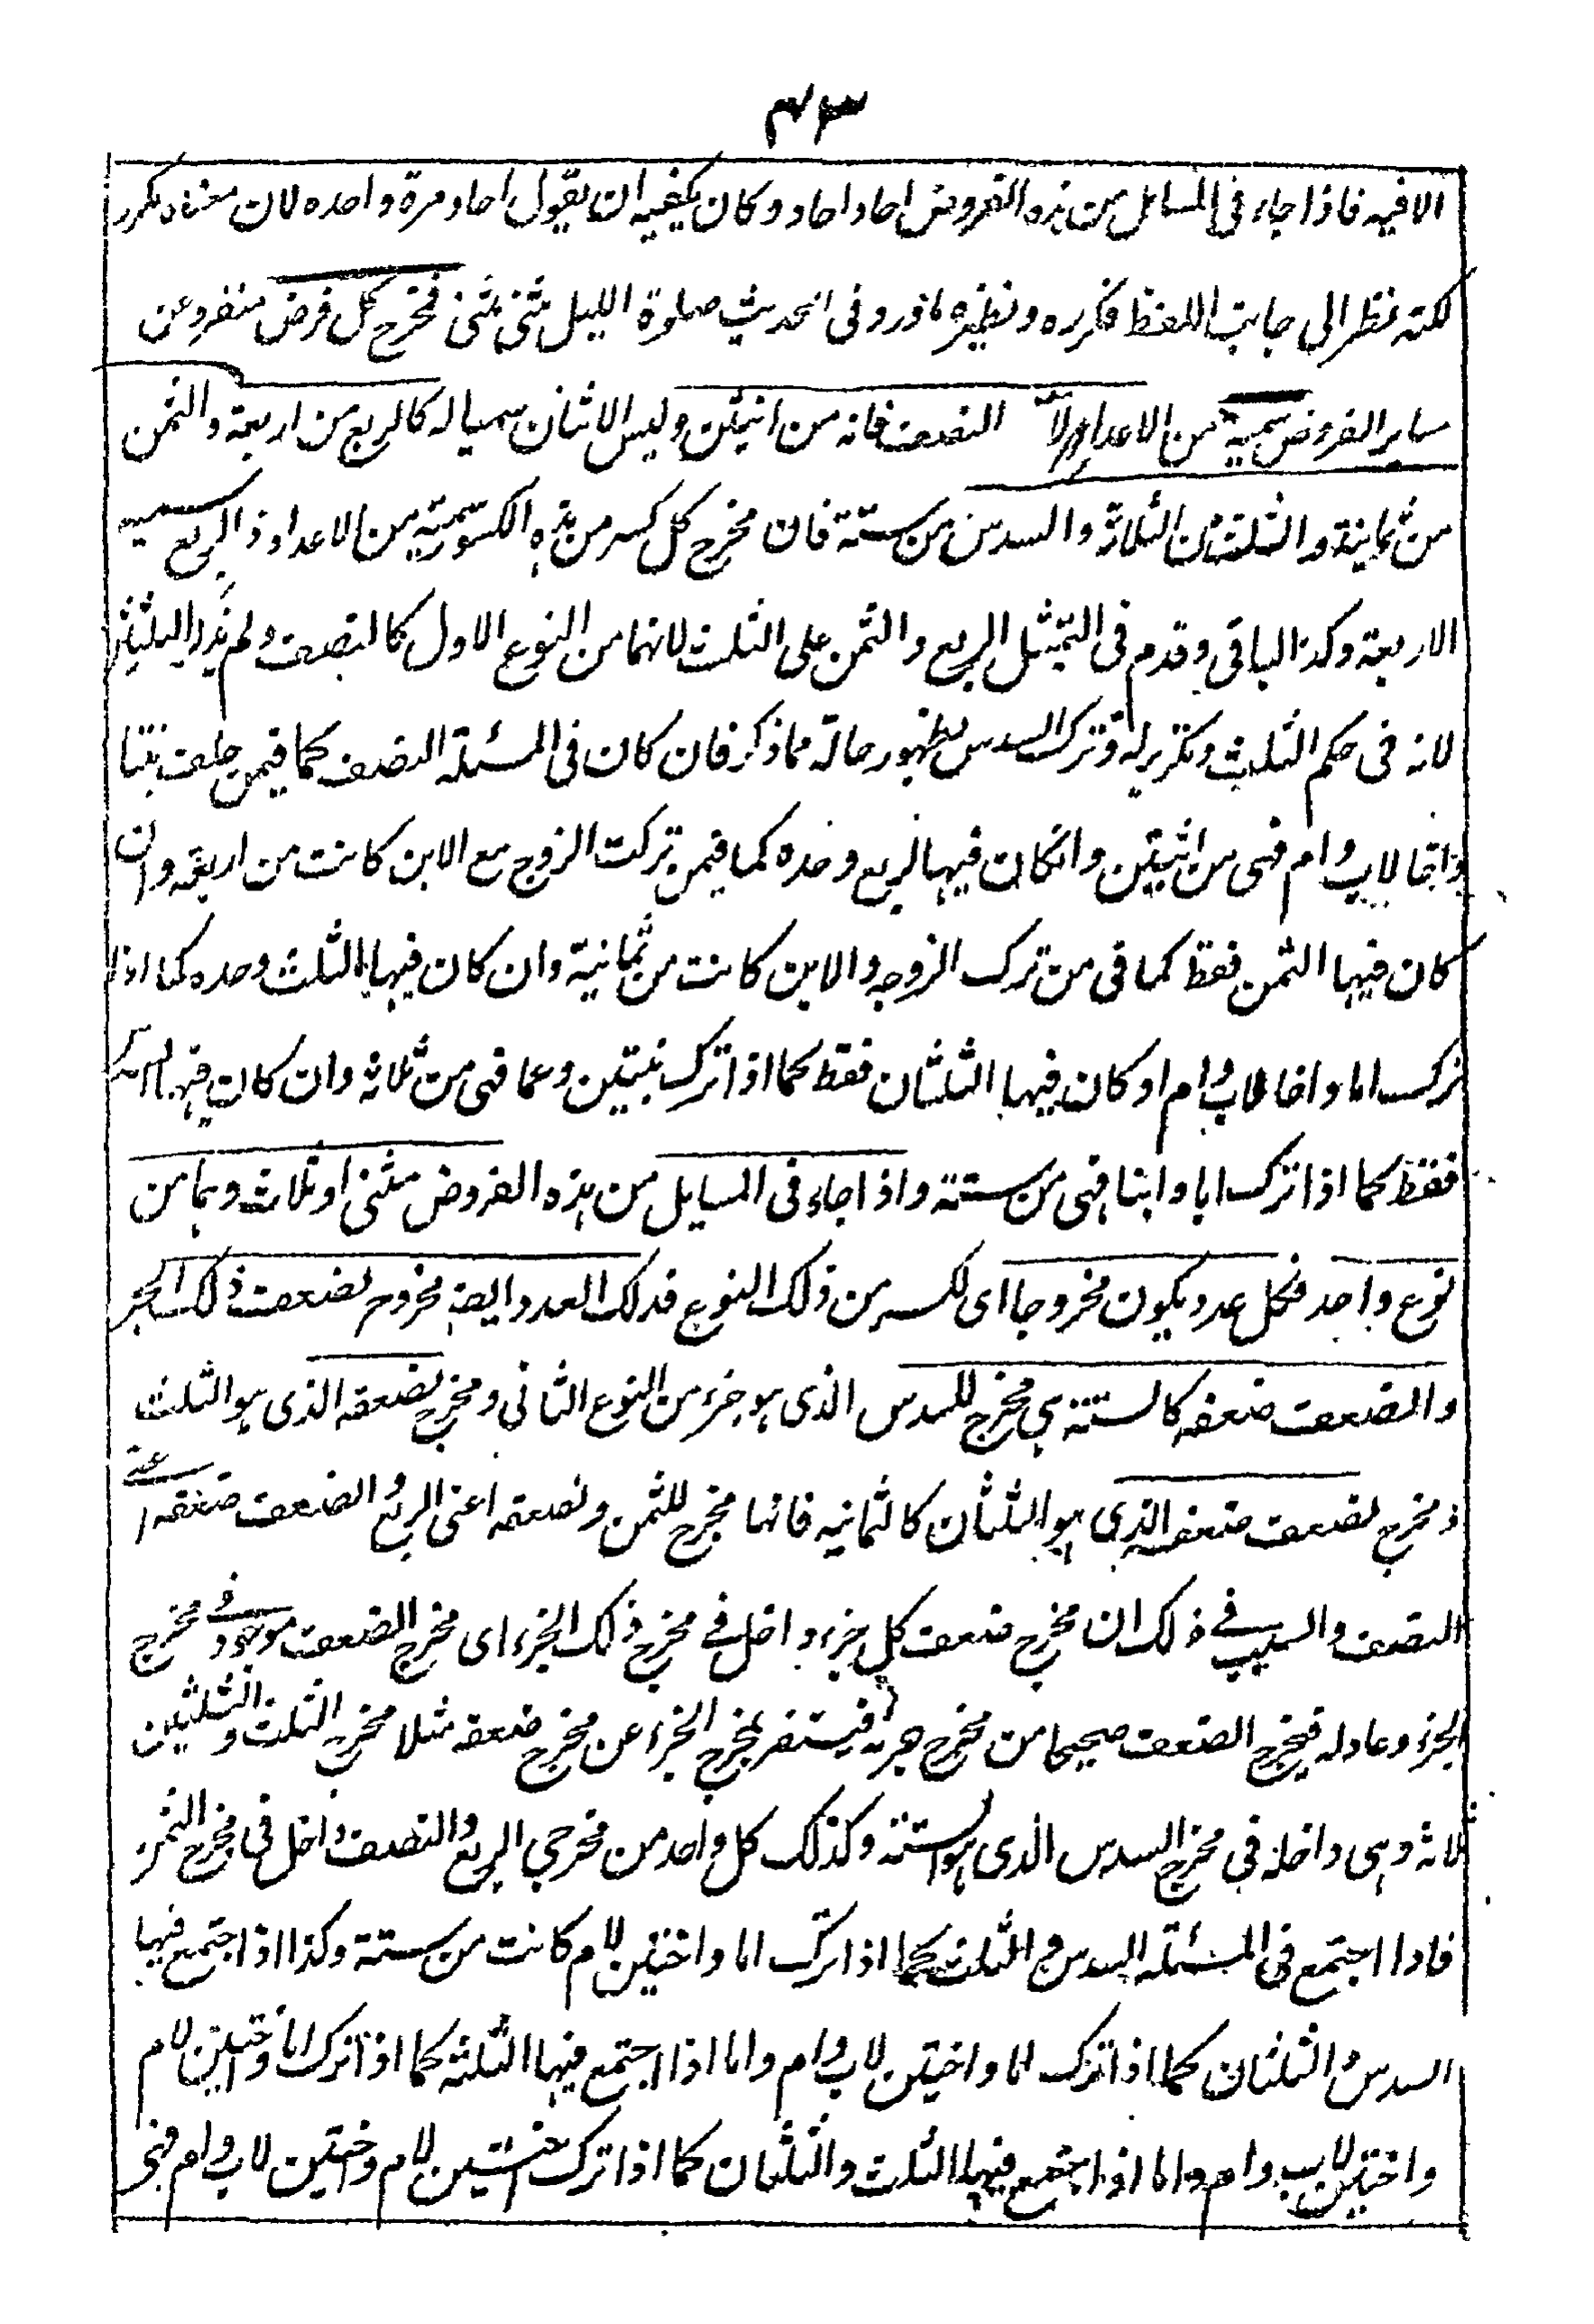 ٤٣
الا فيه فاذا جاء فى المسايل من هذه الفروض احاد احاد وكان يكفيه ان يقول احاد مرة واحده لان معناه مكرر
لكنه نظر الى جانب اللفظ فكرره ونظيره ماورد فى الحديث صلوة الليل مثنى مثنى فمخرج كل فرض منفرد عن
ساير الفروض سميه من الاعداد الا النصف فانه من اثنين وليس الاثنان سميا له كالربع من اربعة والثمن
من ثمانية والثلث من الثلاثة والسدس من ستة فان مخرج كل كسر من هذه الكسور سميه من الاعداد فالربع سميه
الاربعة وكذا الباقى وقدم فى التمثيل الربع والثمن على الثلث لانهما من النوع الاول كالنصف ولم يذكر الثلثين
لانه فى حكم الثلث وتكريره وترك السدس لظهور حاله مما ذكر فان كان فى المسئلة النصف كما فيمن خلف بنتا
واخا لاب وام فهى من اثنين وانكان فيها الربع وحده كما فيمن تركت الزوج مع الابن كانت من اربعة وان
كان فيها الثمن فقط كما فى من ترك الزوجه والابن كانت من ثمانية وان كان فيها الثلث وحده كما اذا
ترك اما واخا لاب وام او كان فيها الثلثان فقط كما اذا ترك بنتين وعما فهى من ثلاثه وان كان فيها السدس
فقط كما اذا ترك ابا وابنا فهى من ستة واذا جاء فى المسايل من هذه الفروض مثنى او ثلاث وهما من
نوع واحد فكل عدد يكون مخروجا اى لكسر من ذلك النوع فذلك العدد ايضا مخروج لضعف ذلك الجزء
والضعف ضعفه كالستة هى مخرج للسدس الذى هو جزء من النوع الثانى ومخرج لضعفه الذى هو الثلث
ومخرج لضعف ضعفه الذى هو الثلثان كالثمانيه فانها مخرج للثمن ولضعفه اعنى الربع والضعف ضعفه اعنى
النصف والسبب فى ذلك ان مخرج ضعف كل جزء داخل فى مخرج ذلك الجزء اى مخرج الضعف موجود فى مخرج
الجزء وعاد له فيخرج الضعف صحيحا من مخرج جزءه فيستفر بمخرج الجزء عن مخرج ضعفه مثلا مخرج الثلث والثلثين
ثلاثه وهى داخله فى مخرج السدس الذى هو الستة وكذلك كل واحد من مخرجى الربع والنصف داخل فى مخرج الثمن
فاذا اجتمع فى المسئله السدس والثلث كما اذا ترك اما واختين لام كانت من ستة وكذا اذا اجتمع فيها
السدس والثلثان كما اذا ترك اما واختين لاب وام واما اذا اجتمع فيها الثلثه كما اذا ترك اما واختين لام
واختين لاب وام واما اذا اجتمع فيها الثلث والثلثان كما اذا ترك اختين لام واختين لاب وام فهى